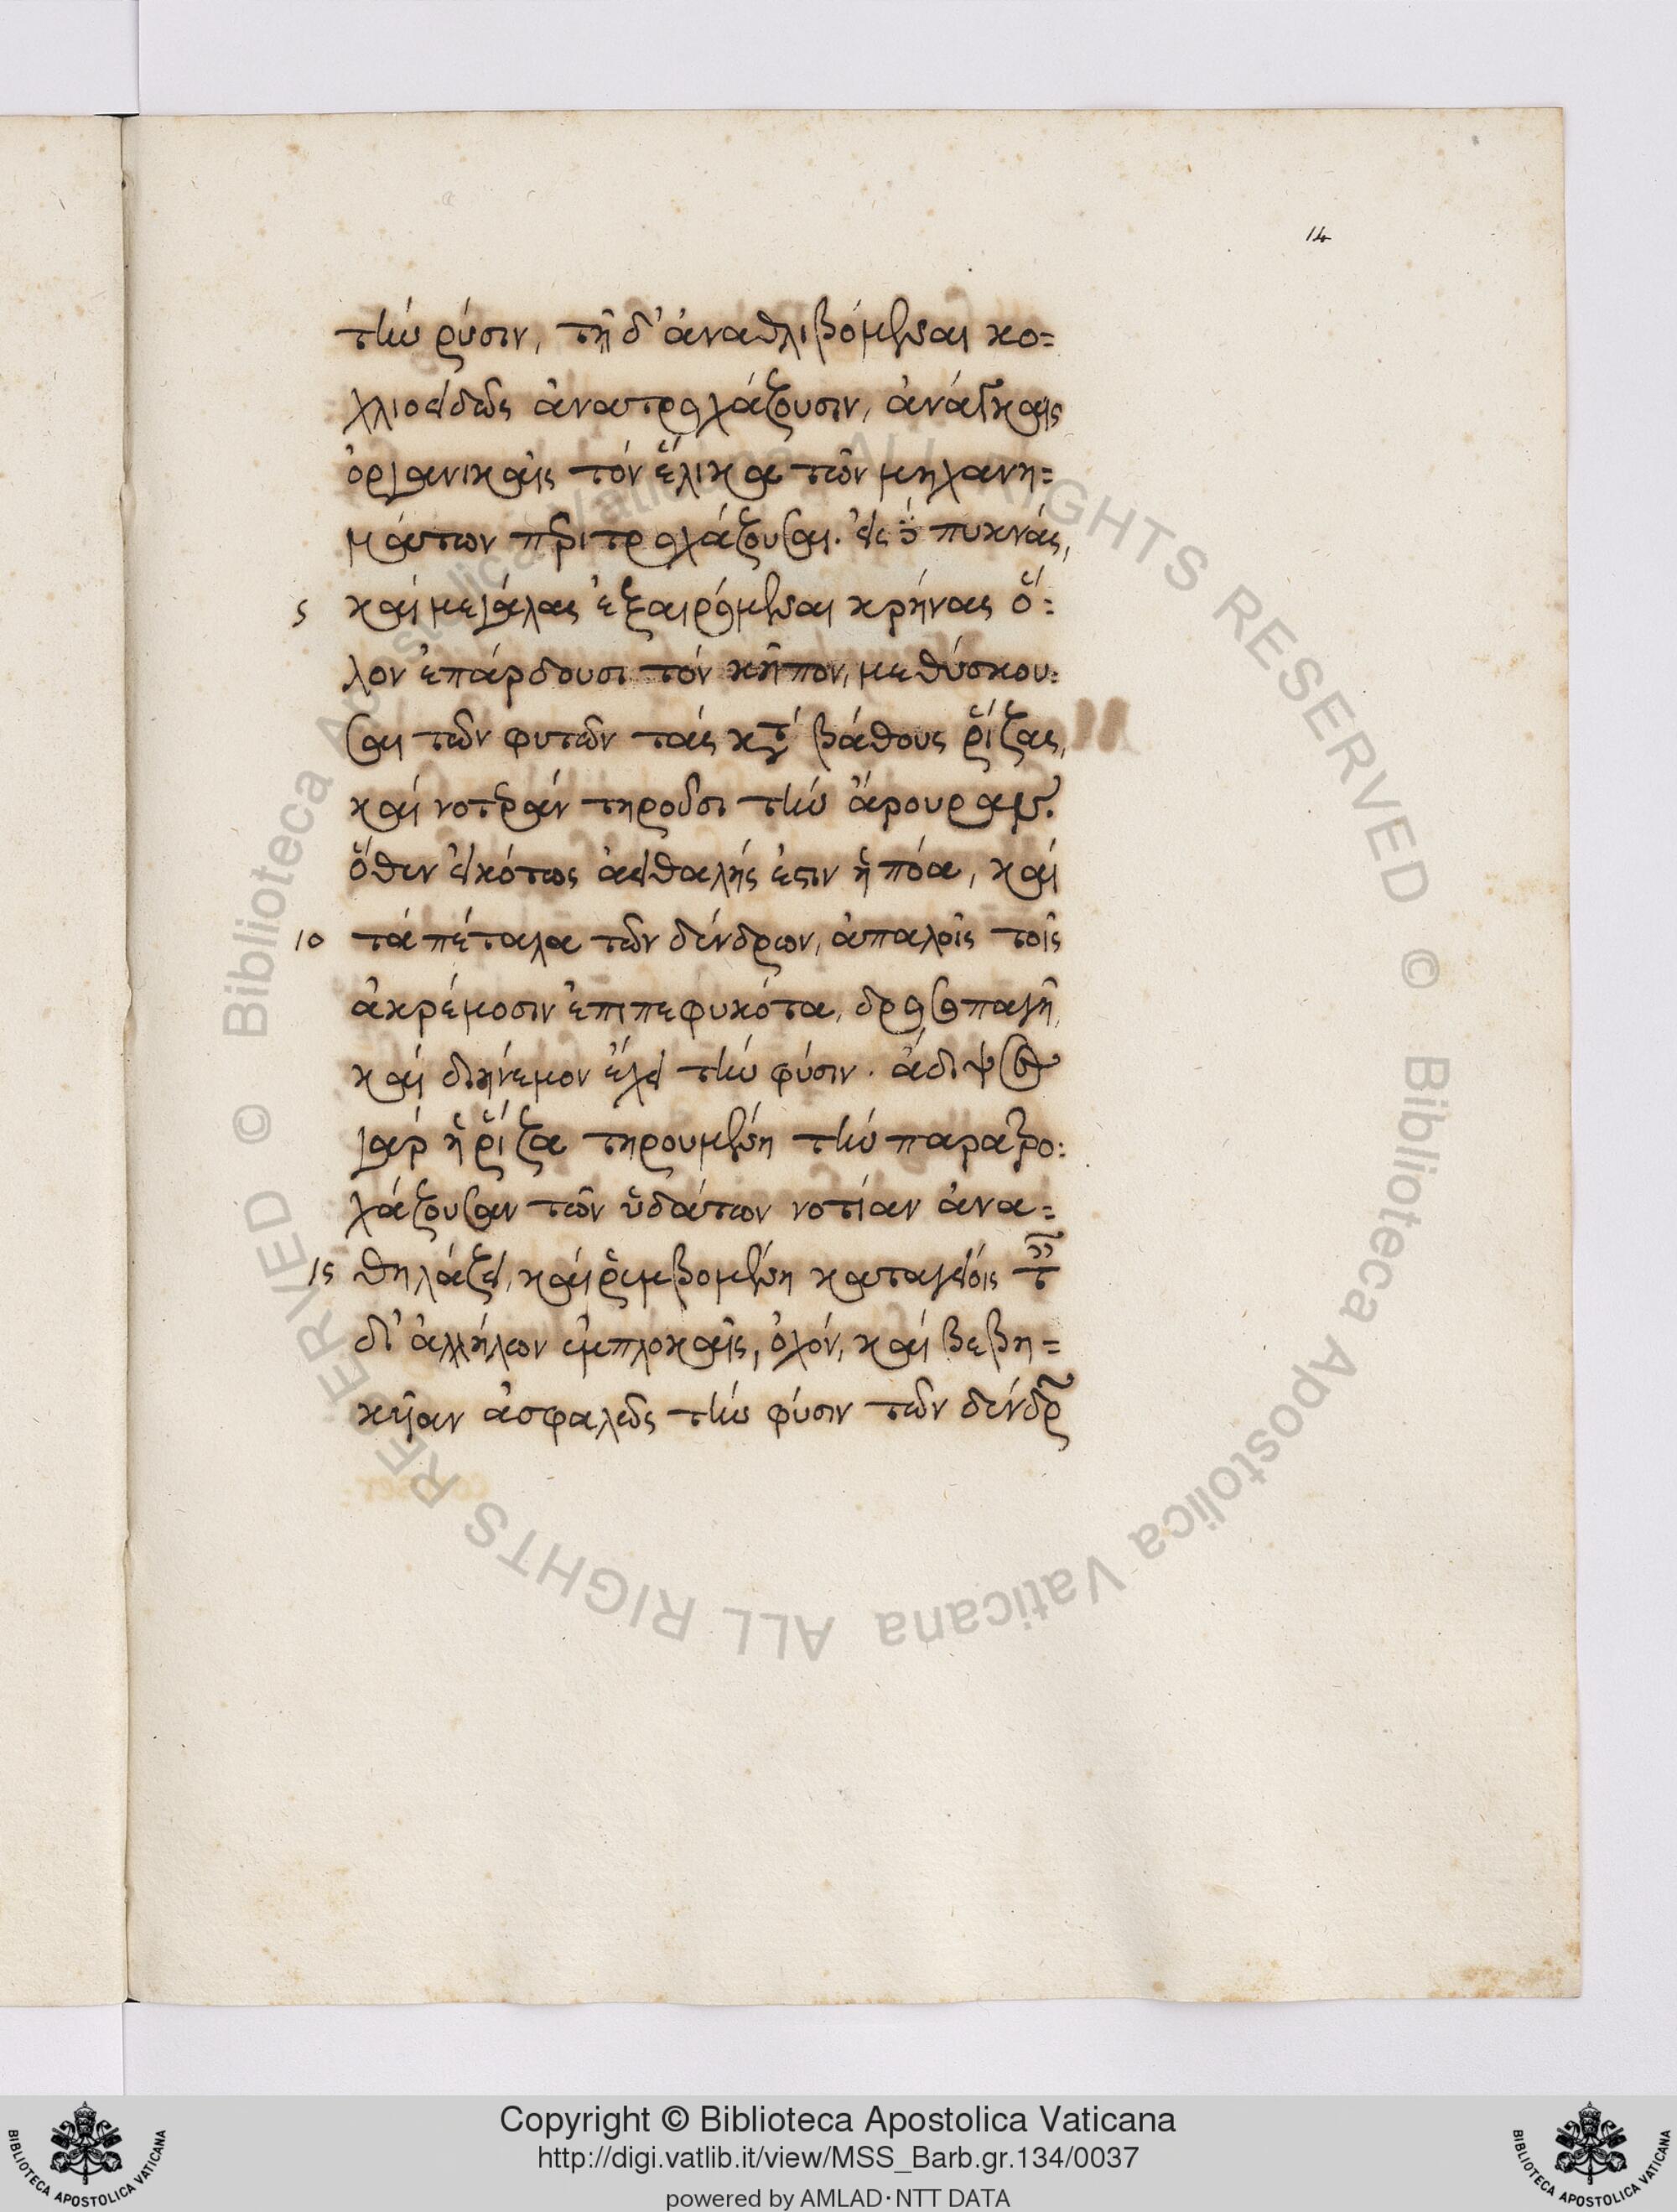 14
τὴν ῥύσιν, τῆ δ' ἀναθλιβόμεναι κο=
χλιοειδῶς ἀνατροχάζουσιν, ἀνάγκαις
ὀργανικαῖς τὸν ἕλικα τῶν μηχανη=
μάτων περιτροχάζουσαι. εἰς πυκνάς,
5 καὶ μεγάλας ἐξαιρόμεναι κρήνας ὅ=
λον ἐπάρδουσι τὸν κῆπον, μεθύσκου=
σαι τῶν φυτῶν τὰς κατὰ βάθους ῥίζας,
καὶ νοτερὰν τηροῦσι τὴν ἄρουραν.
ὅθεν εἰκότως ἀειθαλής ἐστιν ἡ πόα, καὶ
10 τὰ πέταλα τῶν δένδρων, ἁπαλοῖς τοῖς
ἀκρέμοσιν ἐπιπεφυκότα, δροσοπαγῆ,
καὶ διήνεμον ἔχει τὴν φύσιν. ἄδιψος
γὰρ ἡ ῥίζα τηρουμένη τὴν παρατρο=
χάζουσαν τῶν ὑδάτων νοτίαν ἀνα=
15 θηλάζει, καὶ ῥεμβομένη καταγείοις
δι' ἀλλήλων ἐμπλοκαῖς, ὀχόν, καὶ βεβη=
κῆαν ἀσφαλῶς τὴν φύσιν τῶν δένδρων
© Biblioteca Apostolica Vaticana ALL RIGHTS RESERVED
© Biblioteca Apostolica Vaticana ALL RIGHTS RESERVED
Copyright © Biblioteca Apostolica Vaticana
http://digi.vatlib.it/view/MSS_Barb.gr.134/0037
powered by AMLAD·NTT DATA
BIBLIOTECA APOSTOLICA VATICANA
BIBLIOTECA APOSTOLICA VATICANA